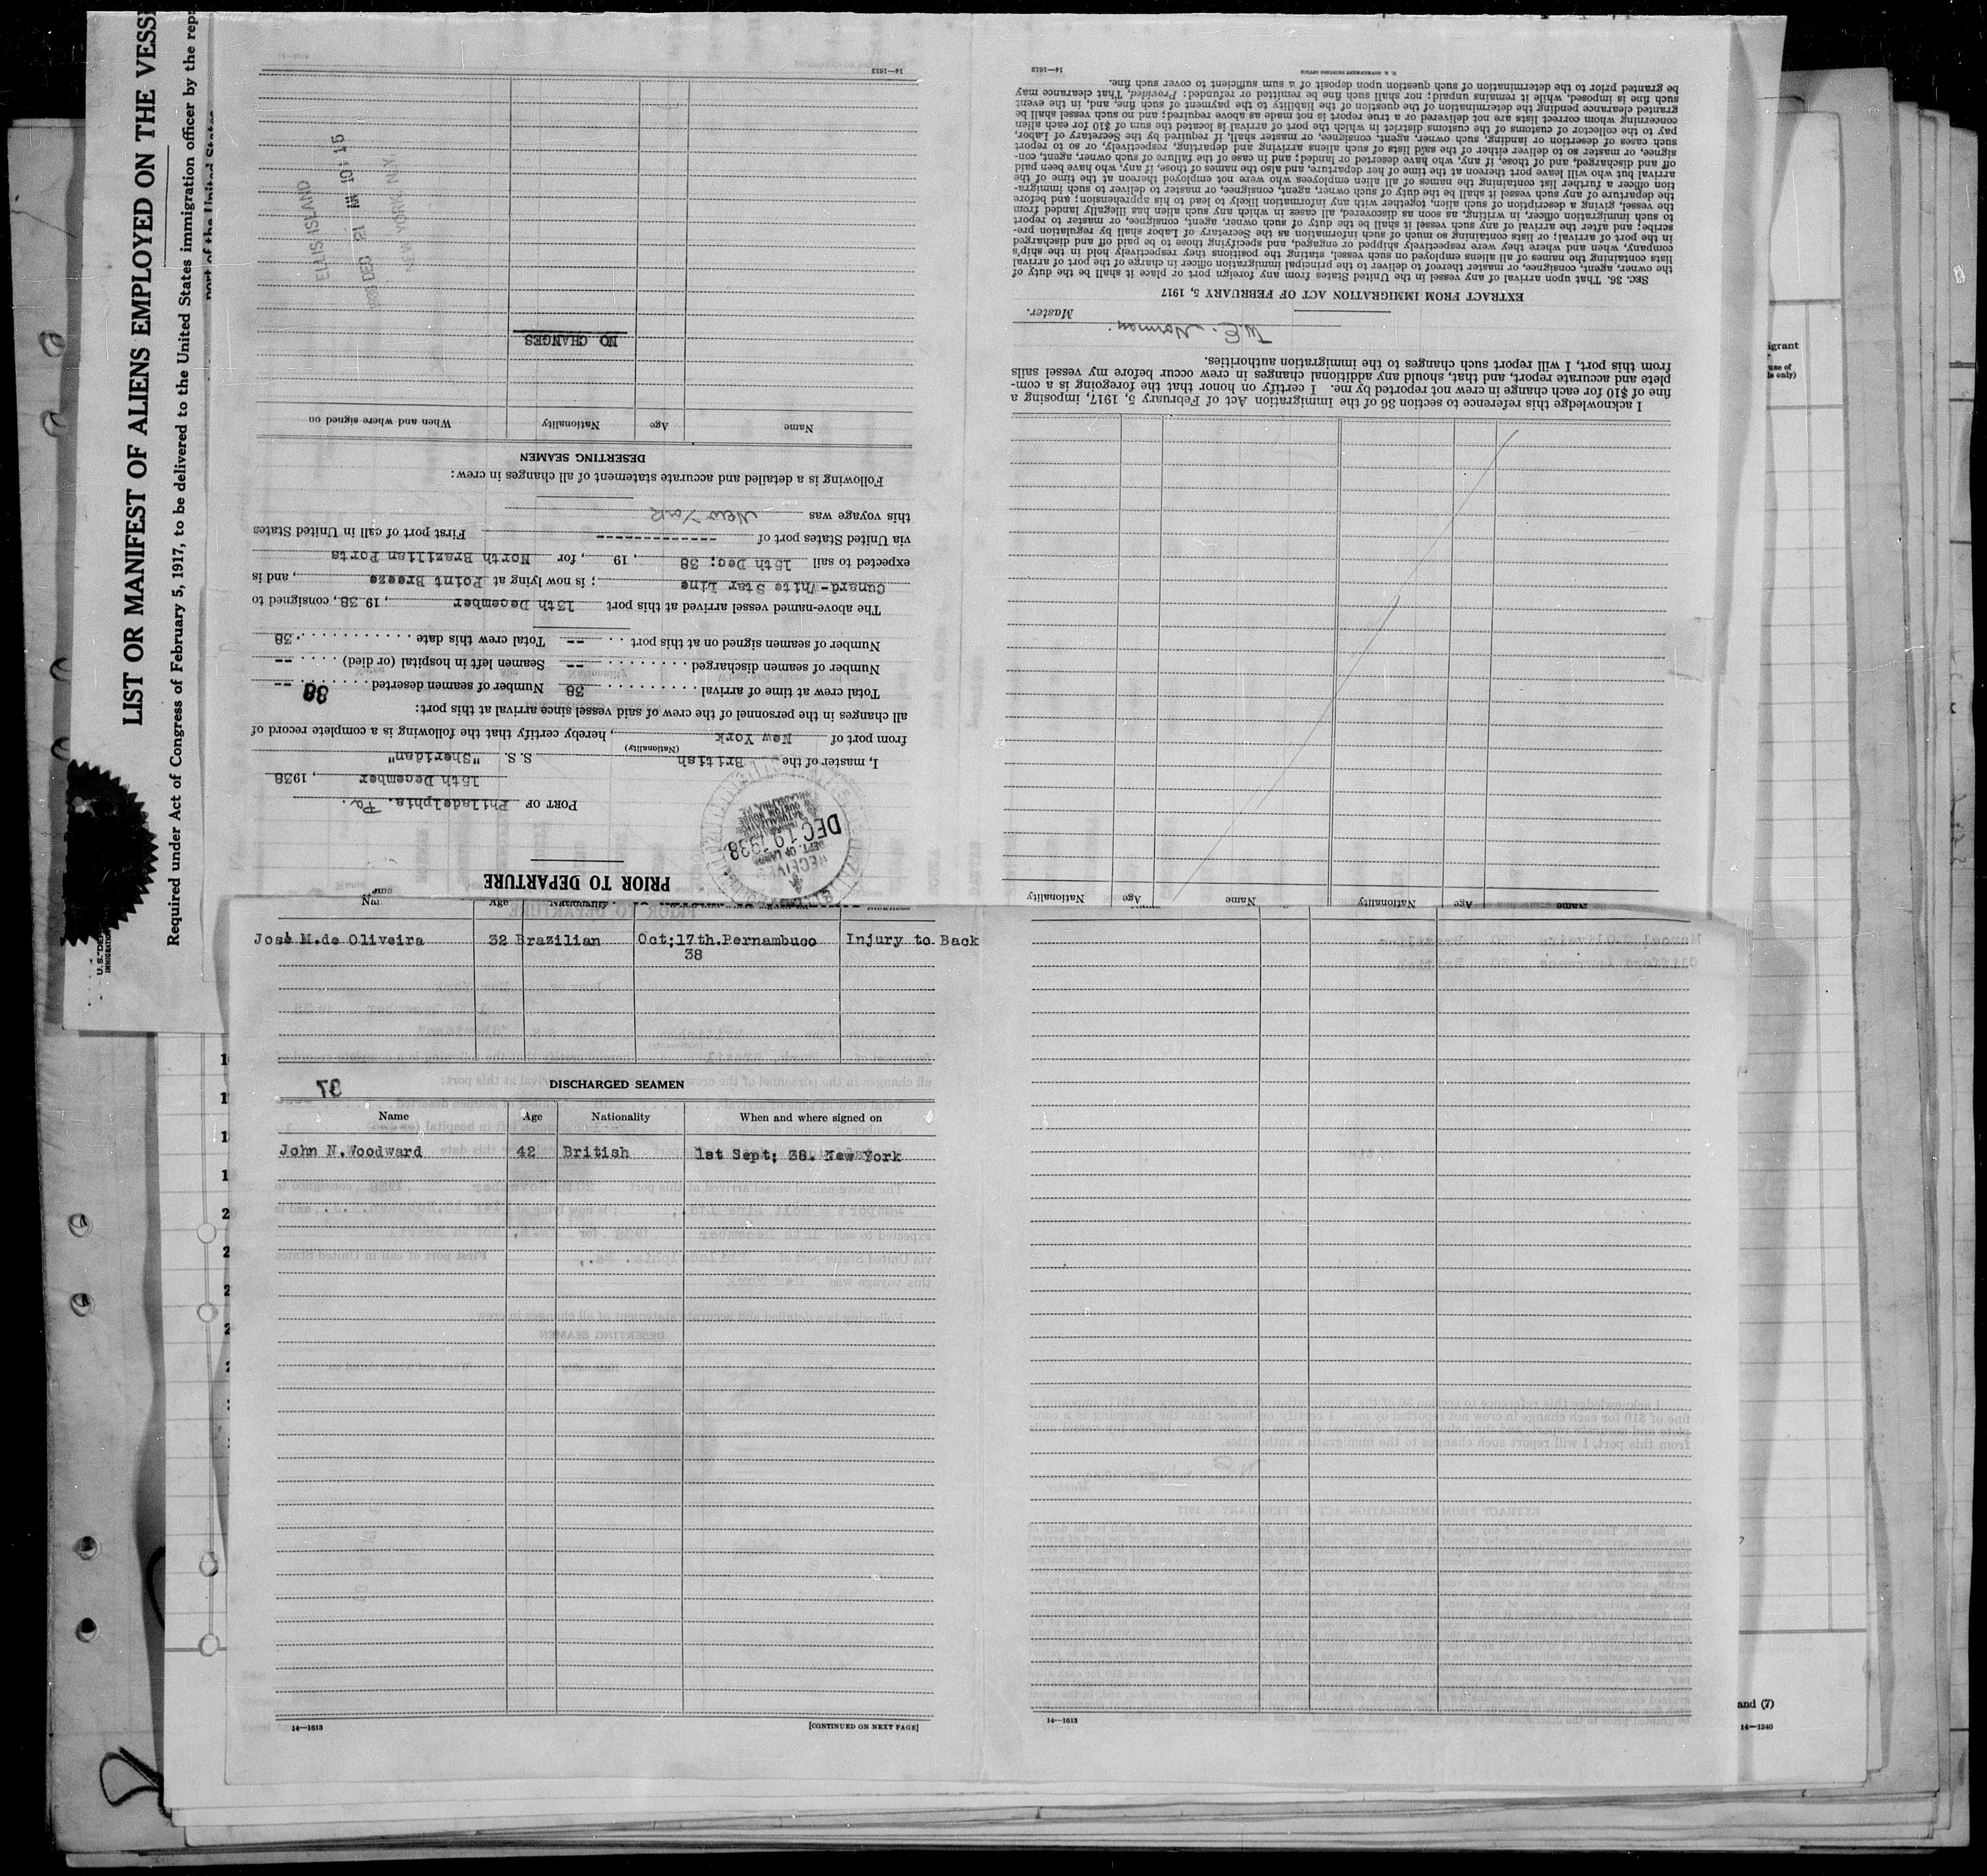 LIST OR MANIFEST OF ALIENS EMPLOYED ON THE VESS
Required under Act of Congress of February 5, 1917, to be delivered to the United States immigration officer by the rep
port of the United States
PRIOR TO DEPARTURE
PORT OF Philadelphia. Pa.
15th December, 1938
I, master of the British S. S. "Sheridan"
(Nationality)
from port of New York, hereby certify that the following is a complete record of
all changes in the personnel of the crew of said vessel since arrival at this port:
Total crew at time of arrival 38 Number of seamen deserted --
38
Number of seamen discharged -- Seamen left in hospital (or died) --
Number of seamen signed on at this port -- Total crew this date 38
The above-named vessel arrived at this port 13th December, 19 38, consigned to
Cunard-White Star Line; is now lying at Point Breeze, and is
expected to sail 15th Dec; 38, 19, for North Brazilian Ports
via United States port of ------------- First port of call in United States
this voyage was New York
Following is a detailed and accurate statement of all changes in crew:
DESERTING SEAMEN
Name Age Nationality When and where signed on
NO CHANGES
ELLIS ISLAND
1938 DEC 21 AM 10:15
NEW YORK, N.Y.
14—1613
RECEIVED
DEPT. OF LABOR
DEC 19 1938
Name Age Nationality Name Age Nationality
I acknowledge this reference to section 36 of the Immigration Act of February 5, 1917, imposing a
fine of $10 for each change in crew not reported by me. I certify on honor that the foregoing is a com-
plete and accurate report, and that, should any additional changes in crew occur before my vessel sails
from this port, I will report such changes to the immigration authorities.
W. E. Norman.
Master.
EXTRACT FROM IMMIGRATION ACT OF FEBRUARY 5, 1917
SEC. 36. That upon arrival of any vessel in the United States from any foreign port or place it shall be the duty of
the owner, agent, consignee, or master thereof to deliver to the principal immigration officer in charge of the port of arrival
lists containing the names of all aliens employed on such vessel, stating the positions they respectively hold in the ship's
company, when and where they were respectively shipped or engaged, and specifying those to be paid off and discharged
in the port of arrival; or lists containing so much of such information as the Secretary of Labor shall by regulation pre-
scribe; and after the arrival of any such vessel it shall be the duty of such owner, agent, consignee, or master to report
to such immigration officer, in writing, as soon as discovered, all cases in which any such alien has illegally landed from
the vessel, giving a description of such alien, together with any information likely to lead to his apprehension; and before
the departure of any such vessel it shall be the duty of such owner, agent, consignee, or master to deliver to such immigra-
tion officer a further list containing the names of all alien employees who were not employed thereon at the time of the
arrival but who will leave port thereon at the time of her departure, and also the names of those, if any, who have been paid
off and discharged, and of those, if any, who have deserted or landed; and in case of the failure of such owner, agent, con-
signee, or master so to deliver either of the said lists of such aliens arriving and departing, respectively, or so to report
such cases of desertion or landing, such owner, agent, consignee, or master shall, if required by the Secretary of Labor,
pay to the collector of customs of the customs district in which the port of arrival is located the sum of $10 for each alien
concerning whom correct lists are not delivered or a true report is not made as above required; and no such vessel shall be
granted clearance pending the determination of the question of the liability to the payment of such fine, and, in the event
such fine is imposed, while it remains unpaid; nor shall such fine be remitted or refunded: Provided, That clearance may
be granted prior to the determination of such question upon deposit of a sum sufficient to cover such fine.
U. S. GOVERNMENT PRINTING OFFICE
14—1613
José M.de Oliveira 32 Brazilian Oct;17th.Pernambuco Injury to Back
38
37
DISCHARGED SEAMEN
Name Age Nationality When and where signed on
John N.Woodward 42 British 1st Sept; 38. New York
14—1613
[CONTINUED ON NEXT PAGE]
14—1613
and (7)
14—1240